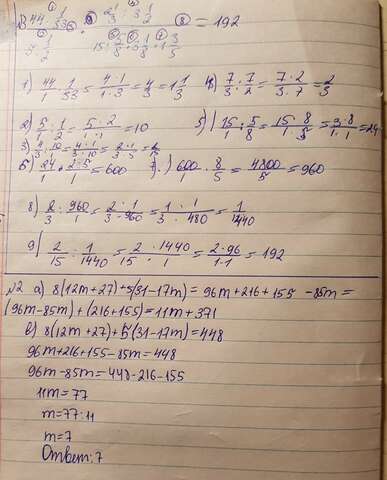 1) 44/1 · 1/33 = 4·1/1·3 = 4/3 = 1 1/3 4) 7/3 : 7/2 = 7·2/3·7 = 2/3
2) 5/1 : 1/2 = 5·2/1·1 = 10 5) 15/1 : 5/8 = 15·8/1·5 = 3·8/1·1 = 24
6) 24/1 · 25/1 = 600 7) 600/1 · 8/5 = 4800/5 = 960
8) 2/3 : 960/1 = 2·1/3·960 = 1·1/3·480 = 1/1440
9) 2/15 : 1/1440 = 2·1440/15·1 = 2·96/1·1 = 192
№2 а) 8(12m+27)+5(31-17m) = 96m+216+155 -85m =
(96m-85m)+(216+155) = 11m+371
в) 8(12m+27)+5(31-17m)=448
96m+216+155-85m=448
96m-85m=448-216-155
11m=77
m=77:11
m=7
Ответ: 7